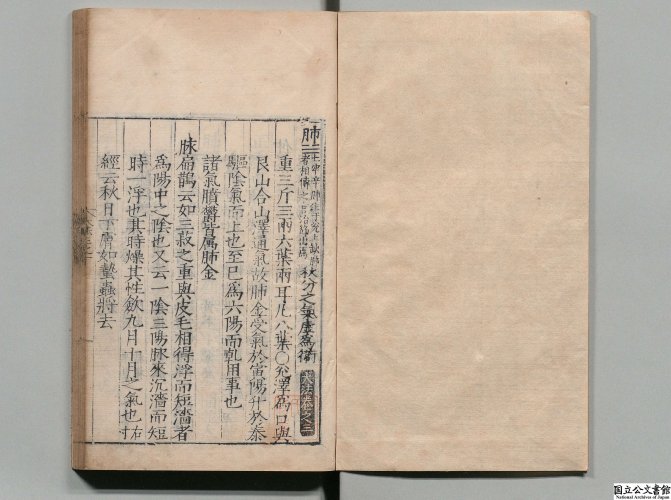 肺 三
秋分之氣
法卷之三
重三斤三兩六葉兩耳凡八葉〇兌澤為口與
艮山合山澤通氣故肺金受氣於寅陽升於泰
驅陰氣而上也至巳為六陽而乾用事也
諸氣膹鬱皆属肺金
脉扁鵲云如三菽之重與皮毛相得浮而短濇者
為陽中之陰也又云一陰三陽脉來沉濇而短
時一浮也其時燥其性歛九月十月之氣也右寸
經云秋日下膚如蟄蟲將去
国立公文書館
National Archives of Japan